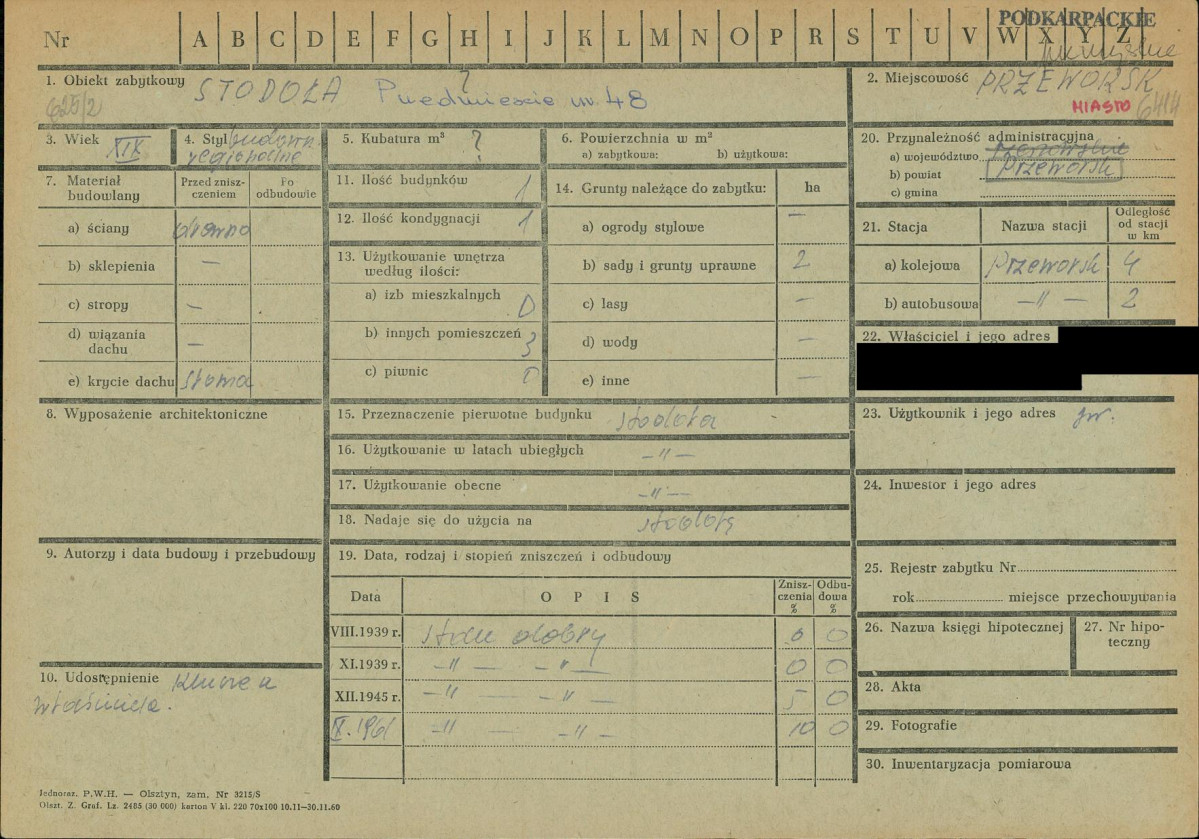 PODKARPACKIE
Nr A B C D E F G H I J K L M N O P R S T U V W X Y Z
1. Obiekt zabytkowy STODOŁA ? Przedmieście nr. 48
625/2
2. Miejscowość PRZEWORSK
MIASTO 6414
3. Wiek XIX
4. Styl budown. regionalne
5. Kubatura m³ ?
6. Powierzchnia w m²
a) zabytkowa: b) użytkowa:
20. Przynależność administracyjna
a) województwo rzeszowskie
b) powiat Przeworsk
c) gmina
7. Materiał budowlany
Przed znisz-
czeniem
Po
odbudowie
a) ściany drewno
b) sklepienia —
c) stropy —
d) wiązania
dachu —
e) krycie dachu słoma
11. Ilość budynków 1
12. Ilość kondygnacji 1
13. Użytkowanie wnętrza
według ilości:
a) izb mieszkalnych 0
b) innych pomieszczeń 3
c) piwnic
14. Grunty należące do zabytku: ha
a) ogrody stylowe —
b) sady i grunty uprawne 2
c) lasy —
d) wody —
e) inne —
21. Stacja Nazwa stacji
Odległość
od stacji
w km
a) kolejowa Przeworsk 4
b) autobusowa —"— 2
22. Właściciel i jego adres
8. Wyposażenie architektoniczne
15. Przeznaczenie pierwotne budynku stodoła
16. Użytkowanie w latach ubiegłych —"—
17. Użytkowanie obecne —"—
18. Nadaje się do użycia na stodołę
23. Użytkownik i jego adres jw.
24. Inwestor i jego adres
9. Autorzy i data budowy i przebudowy
19. Data, rodzaj i stopień zniszczeń i odbudowy
Data OPIS
Znisz-
czenia
%
Odbu-
dowa
%
VIII.1939 r. stan dobry 0 0
XI.1939 r. —"— —"— 0 0
XII.1945 r. —"— —"— 5 0
X. 1961 —"— —"— 10 0
25. Rejestr zabytku Nr
rok miejsce przechowywania
26. Nazwa księgi hipotecznej
27. Nr hipo-
teczny
10. Udostępnienie Klucze u
właściciela.
28. Akta
29. Fotografie
30. Inwentaryzacja pomiarowa
Jednoraz. P.W.H. — Olsztyn, zam. Nr 3215/S
Olszt. Z. Graf. Lz. 2485 (30 000) karton V kl. 220 70x100 10.11—30.11.60